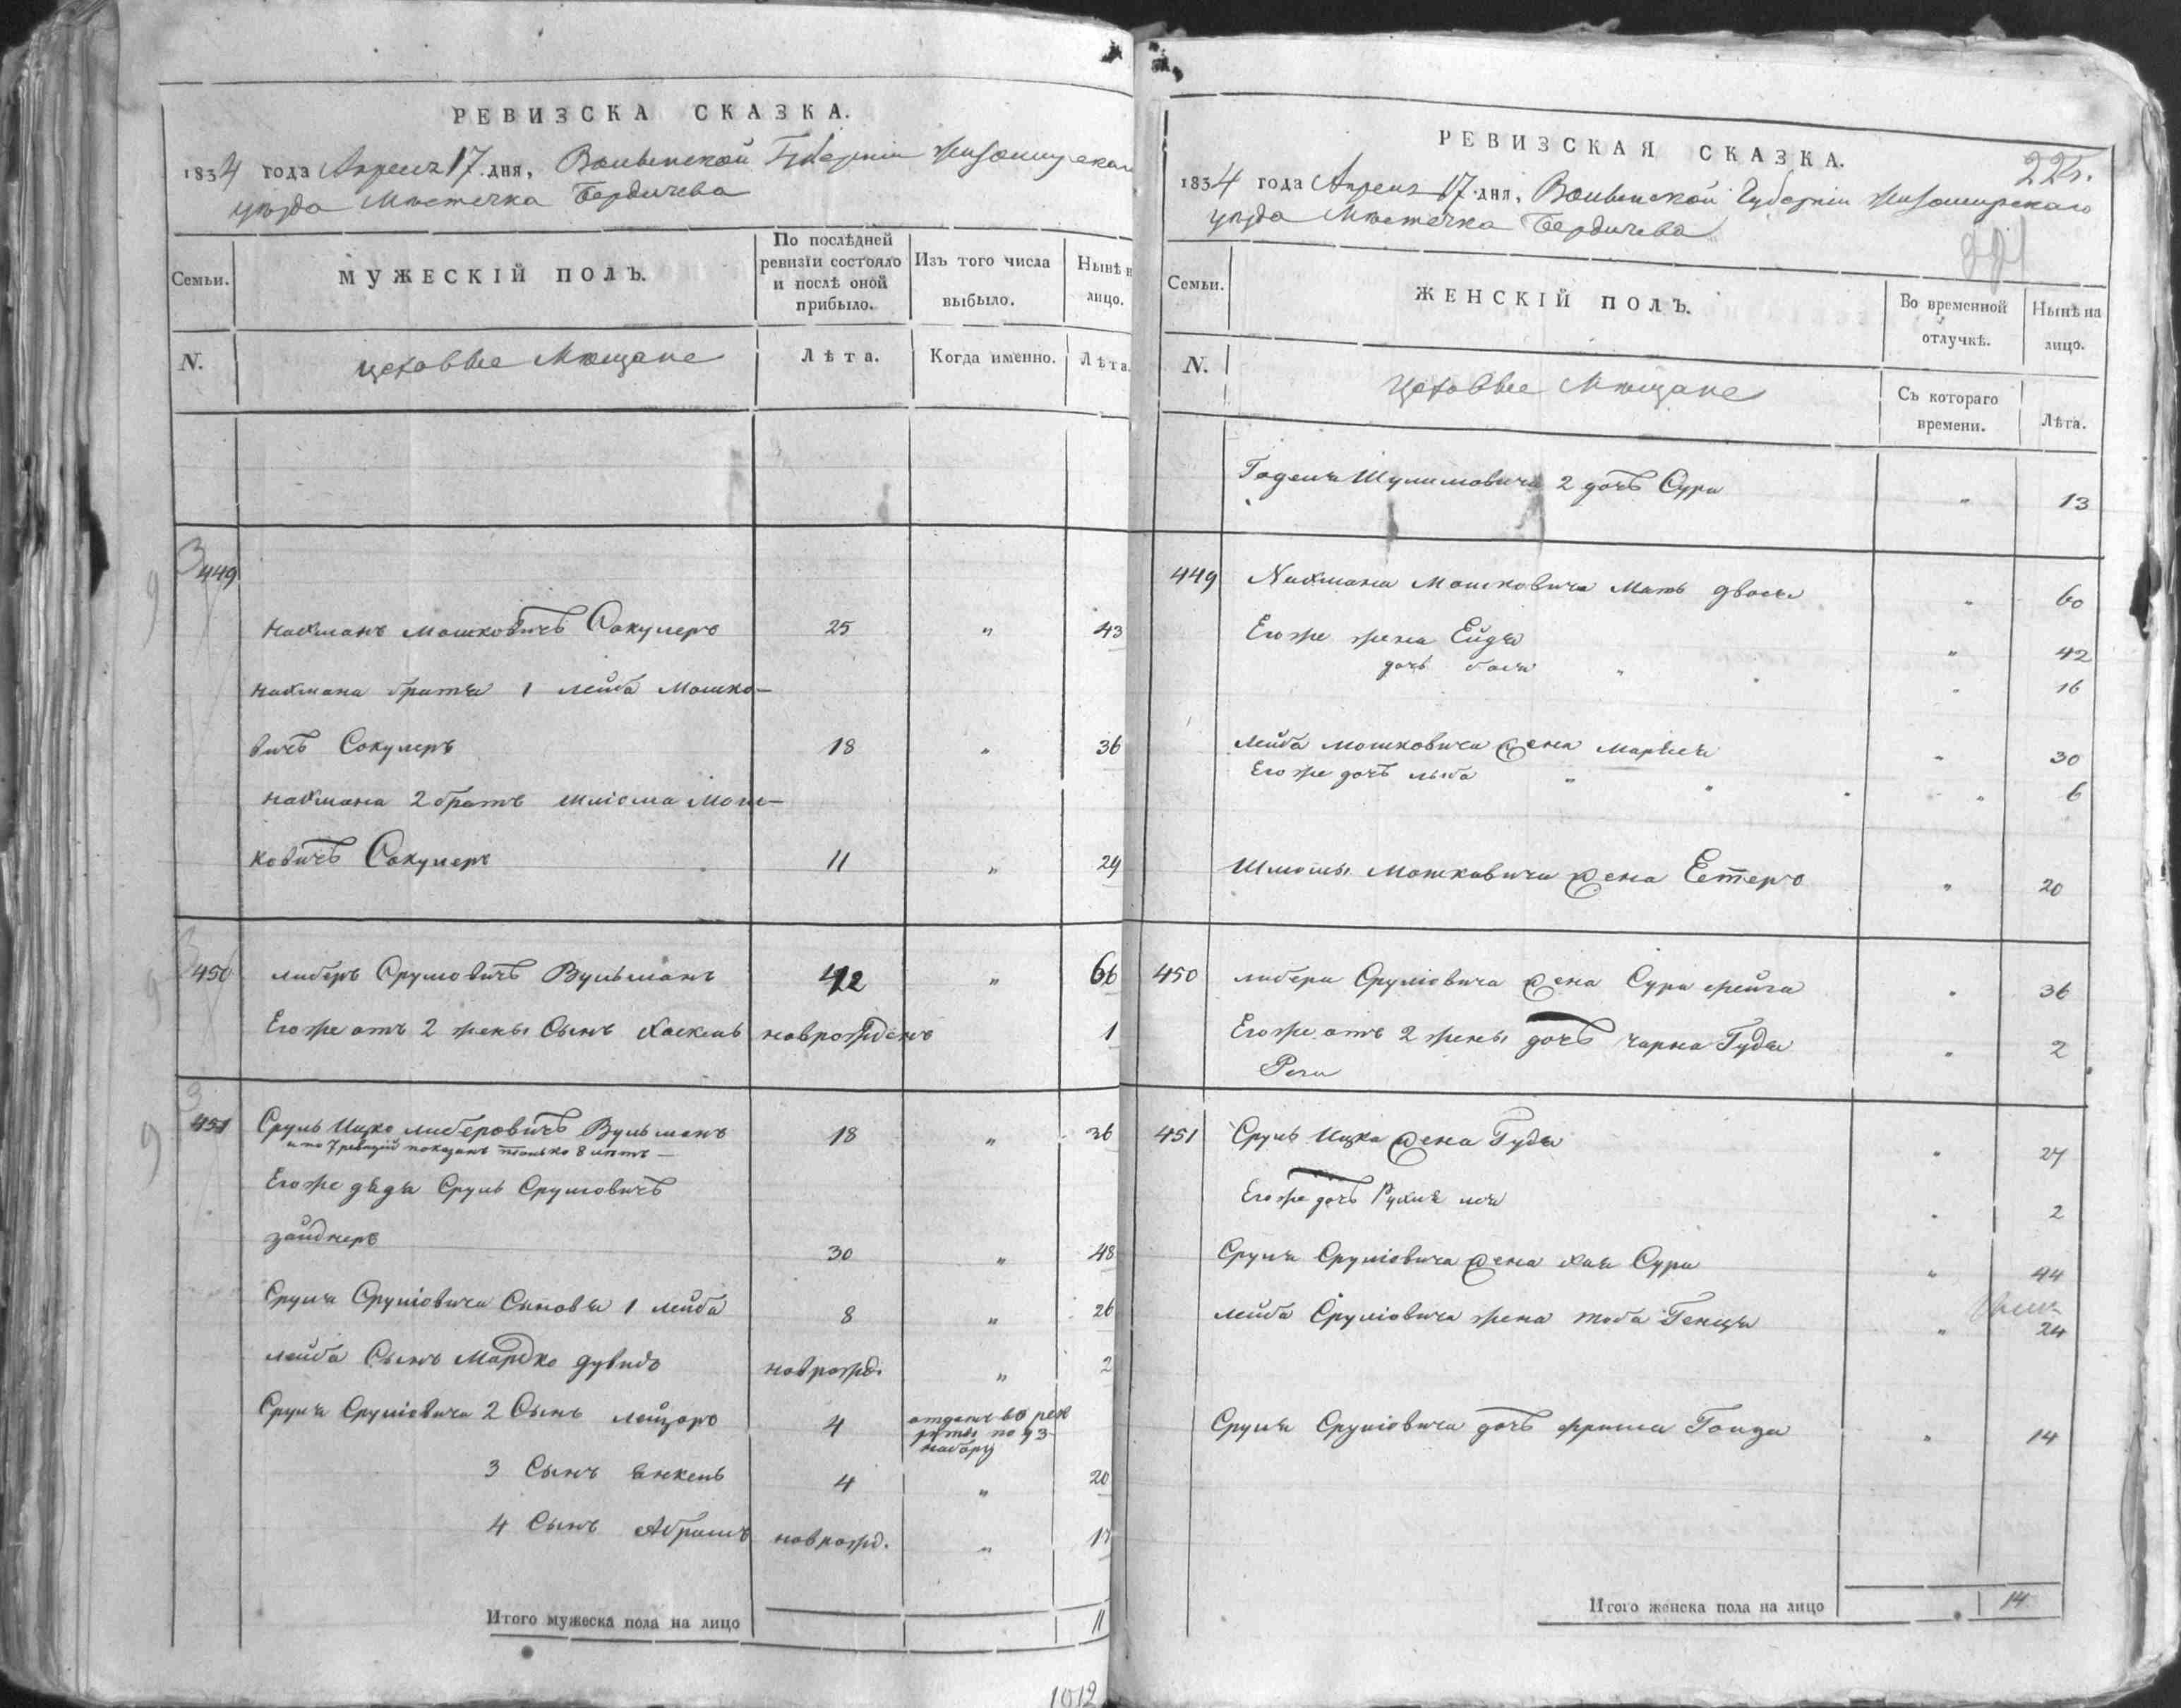 РЕВИЗСКА СКАЗКА.
1834 года Апреля 17 дня, Волынской Губерніи Житомирскаго
уѣзда Мѣстечка Бердичева
Семьи.
МУЖЕСКІЙ ПОЛЪ.
По послѣдней ревизіи состояло и послѣ оной прибыло.
Изъ того числа выбыло.
Нынѣ на лицо.
N.
цеховые Мещане
Лѣта.
Когда именно.
Лѣта.
449
Нахманъ Мошковичъ Сокулеръ 25 " 43
Нахмана братья 1 Лейба Мошко-
вичъ Сокулеръ 18 " 36
Нахмана 2 братъ Шліома Мош-
ковичъ Сокулеръ 11 " 29
450 Либеръ Сруліовичъ Вульманъ 42 " 66
Его же отъ 2 жены Сынъ Хаскель новрожденъ 1
451 Сруль Ицко Либеровичъ Вульманъ 18 " 36
а по 7 ревизіи показанъ только 8 лѣтъ —
Его же дядя Сруль Сруліовичъ
Зайднеръ 30 " 48
Сруля Сруліовича Сыновья 1 Лейба 8 " 26
Лейба Сынъ Мордко Дувидъ новрожд. " 2
Сруля Сруліовича 2 Сынъ Лейзоръ 4 отданъ въ рек
руты по 93
набору
3 Сынъ Янкель 4 " 20
4 Сынъ Абрамъ новрожд. " 17
Итого мужеска пола на лицо 11
1012
РЕВИЗСКАЯ СКАЗКА.
225.
1834 года Апреля 17 дня, Волынской Губерніи Житомирскаго
уѣзда Мѣстечка Бердичева
Семьи.
ЖЕНСКІЙ ПОЛЪ.
Во временной отлучкѣ.
Нынѣ на лицо.
N.
Цеховые Мещане
Съ котораго времени.
Лѣта.
Годеля Шулимовича 2 дочь Сура " 13
449 Нахмана Мошковича Мать Двося " 60
Его же жена Ейдя " 42
дочь Бася " 16
Лейба Мошковича жена Маріася " 30
Его же дочь Либа " 6
Шліомы Мошковича жена Естеръ " 20
450 Либера Сруліовича жена Сура Фейга " 36
Его же отъ 2 жены дочь Чарна Гудя " 2
451 Сруль Ицка жена Гудя " 27
Его же дочь Рухля Лея " 2
Сруля Сруліовича жена Хая Сура " 44
Лейба Сруліовича жена Тоба Генця " 24
Сруля Сруліовича дочь Фрима Голда " 14
Итого женска пола на лицо 14